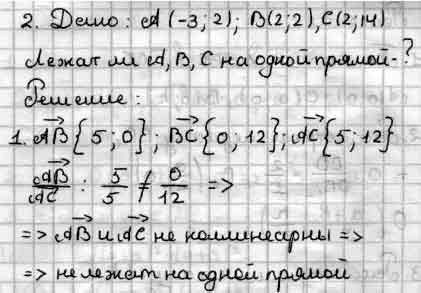 2. Дано: A (-3; 2); B(2;2), C(2;14)
Лежат ли A, B, C на одной прямой-?
Решение:
1. AB⃗ {5; 0}; BC⃗ {0; 12}; AC⃗ {5; 12}
AB⃗/AC⃗ : 5/5 ≠ 0/12 =>
=> AB⃗ и AC⃗ не коллинеарны =>
=> не лежат на одной прямой